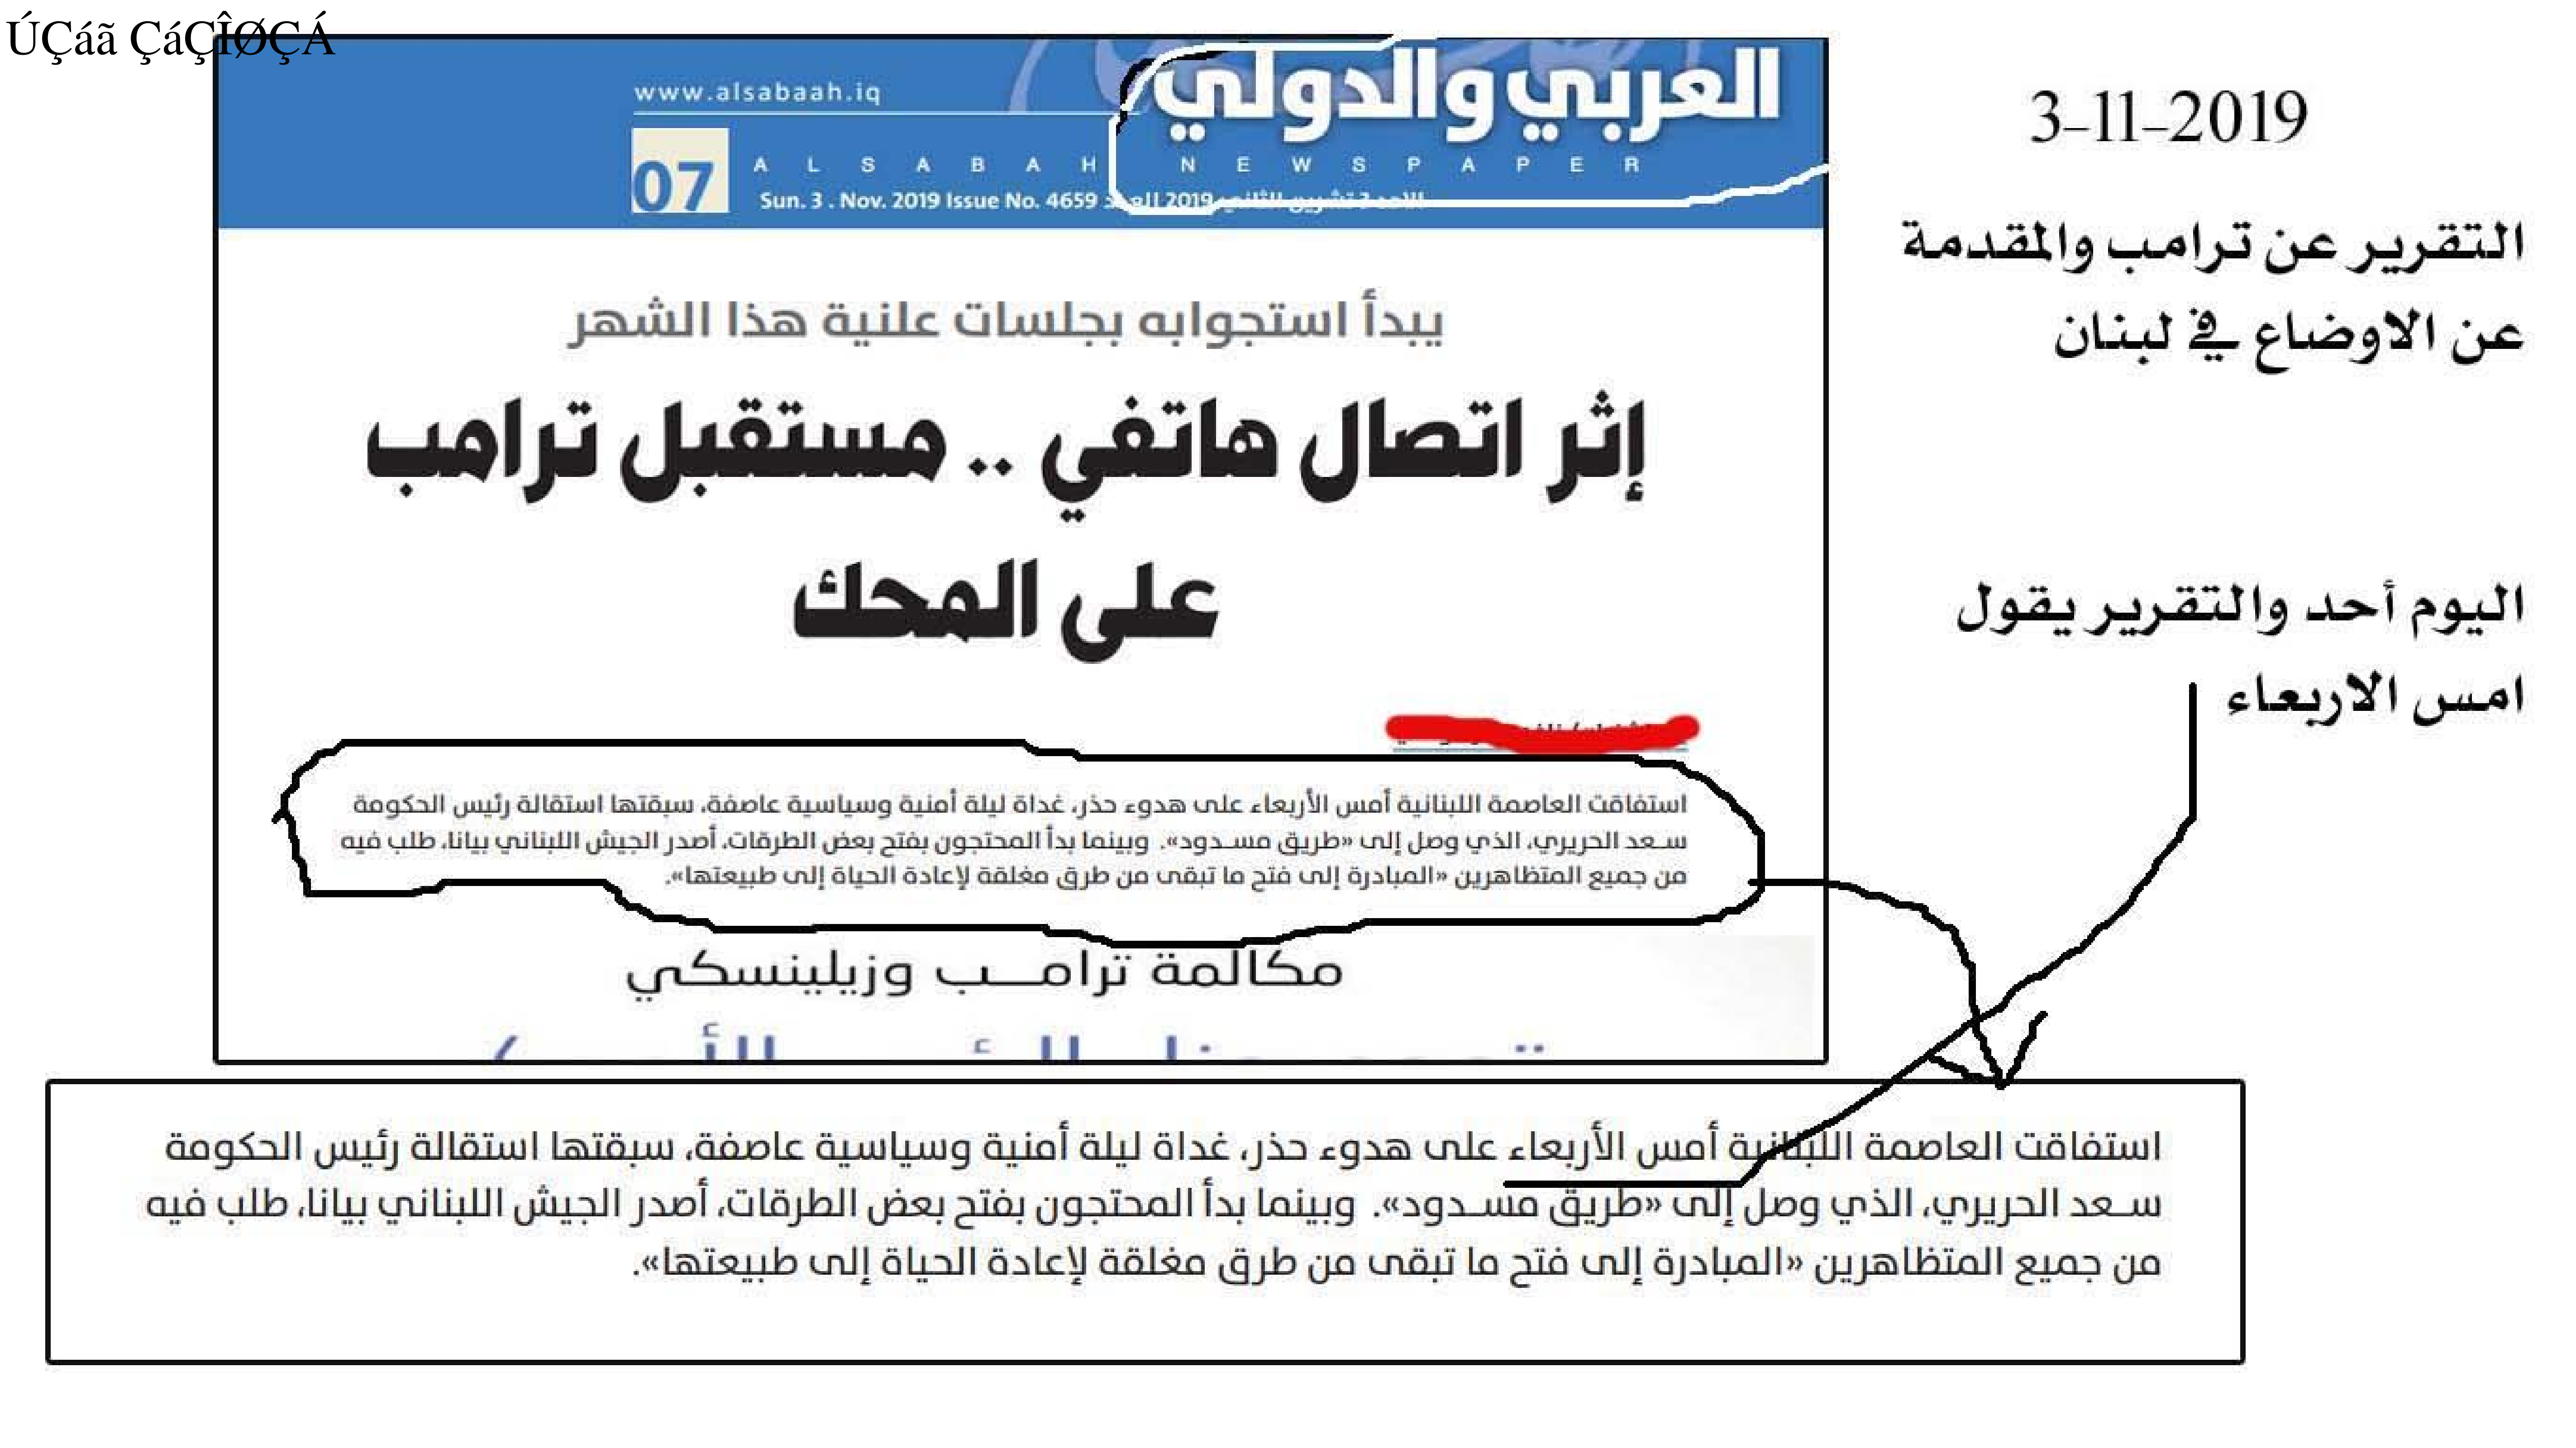 ÚÇáã ÇáÇÎØÇÁ
العربي والدولي
www.alsabaah.iq
07
ALSABAH NEWSPAPER
Sun. 3 . Nov. 2019 Issue No. 4659 الاحد 3 تشرين الثاني 2019 العدد
3-11-2019
التقرير عن ترامب والمقدمة
عن الاوضاع في لبنان
اليوم أحد والتقرير يقول
امس الاربعاء
يبدأ استجوابه بجلسات علنية هذا الشهر
إثر اتصال هاتفي .. مستقبل ترامب
على المحك
استفاقت العاصمة اللبنانية أمس الأربعاء على هدوء حذر، غداة ليلة أمنية وسياسية عاصفة، سبقتها استقالة رئيس الحكومة
سـعد الحريري، الذي وصل إلى «طريق مسـدود». وبينما بدأ المحتجون بفتح بعض الطرقات، أصدر الجيش اللبناني بيانا، طلب فيه
من جميع المتظاهرين «المبادرة إلى فتح ما تبقى من طرق مغلقة لإعادة الحياة إلى طبيعتها».
مكالمة ترامـــب وزيلينسكي
استفاقت العاصمة اللبنانية أمس الأربعاء على هدوء حذر، غداة ليلة أمنية وسياسية عاصفة، سبقتها استقالة رئيس الحكومة
سـعد الحريري، الذي وصل إلى «طريق مسـدود». وبينما بدأ المحتجون بفتح بعض الطرقات، أصدر الجيش اللبناني بيانا، طلب فيه
من جميع المتظاهرين «المبادرة إلى فتح ما تبقى من طرق مغلقة لإعادة الحياة إلى طبيعتها».